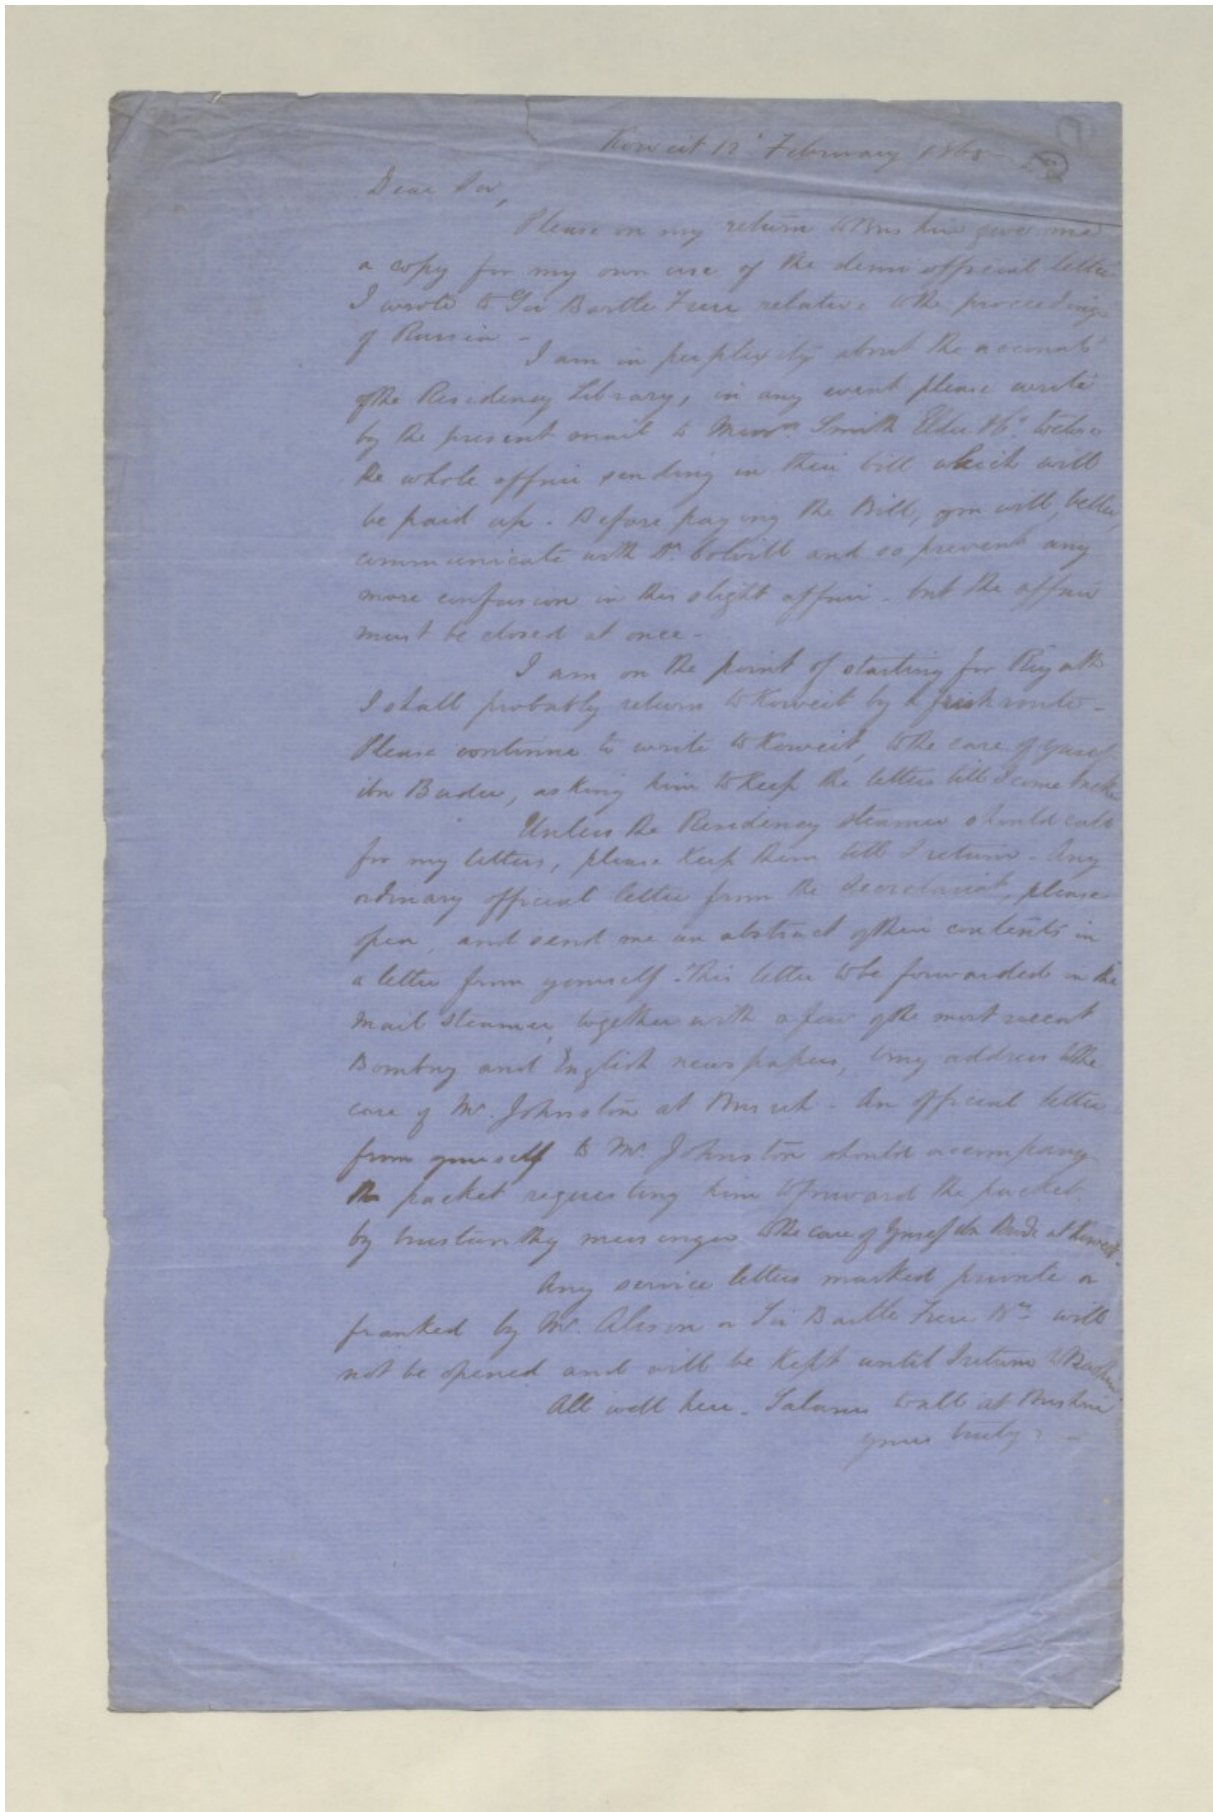 Koweit 12 February 1865
Dear Sir,
Please on my return to Bushire give me
a copy for my own use of the demi official letter
I wrote to Sir Bartle Frere relative to the proceedings
of Russia -
I am in perplexity about the accounts
of the Residency Library, in any event please write
by the present mail to Messrs Smith Elder & Co. to close
the whole affair sending in their bill which will
be paid up. Before paying the Bill, you will, better,
communicate with Dr. Colvill and so prevent any
more confusion in this slight affair - but the affair
must be closed at once -
I am on the point of starting for Riyath
I shall probably return to Koweit by a fresh route -
Please continue to write to Koweit, to the care of Yusef
ibn Buder, asking him to keep the letters till I come back
Unless the Residency steamer should call
for my letters, please keep them till I return - Any
ordinary official letter from the Secretariat, please
open, and send me an abstract of their contents in
a letter from yourself. This letter to be forwarded in the
Mail Steamer, together with a few of the most recent
Bombay and English newspapers, to my address to the
care of Mr. Johnston at Busreh - An official letter
from yourself to Mr. Johnston should accompany
the packet requesting him to forward the packet
by trustworthy messenger to the care of Yusef ibn Buder at Koweit.
Any service letters marked private or
franked by Mr. Alison or Sir Bartle Frere will
not be opened and will be kept until I return to Bushire
All well here. Salaams to all at Bushire
yours truly -